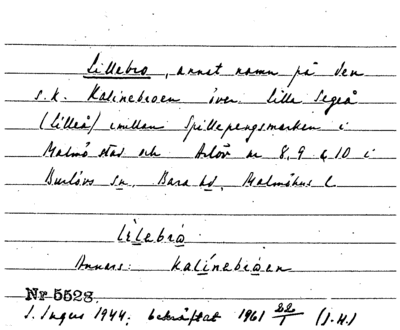 Lillebro, annat namn på den
s.k. Kalinebroen över Lilla Segeå
(Lilleå) mellan Spillepengsmarken i
Malmö stad och Arlöv nr 8, 9 & 10 i
Burlövs sn, Bara hd, Malmöhus l.
Lilebro
Annars: Kalinebroen
Nr 5528.
I. Ingers 1944; bekräftat 1961 22/1 (I.H.)